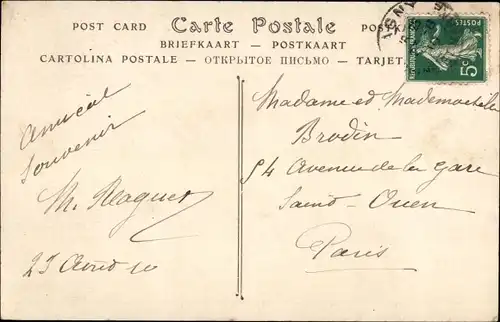 POST CARD Carte Postale POSTKA
BRIEFKAART — POSTKAART
CARTOLINA POSTALE — ОТКРЫТОЕ ПИСЬМО — TARJETA
5c
POSTES
Madame et Mademoiselle
Brodin
54 Avenue de la Gare
Saint-Ouen
Paris
Amical
Souvenir
23 Août 10